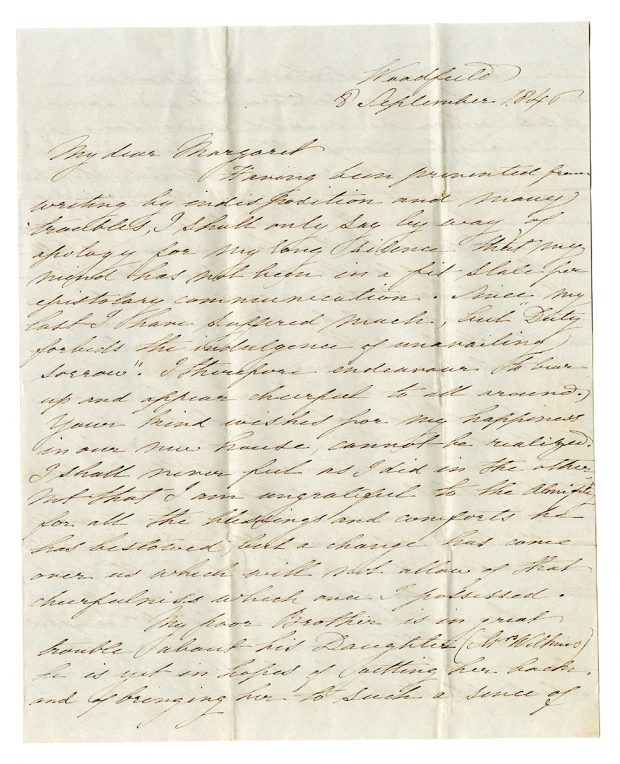 Woodfield
8 September 1846
My dear Margaret
Having been prevented from
writing by indisposition and many
troubles, I shall only say by way of
apology for my long silence that my
mind has not been in a fit state for
epistolary communication. Since my
last I have suffered much, but "Duty
forbids the indulgence of unavailing
sorrow". I therefore endeavour to bear
up and appear cheerful to all around.
Your kind wishes for my happiness
in our new house, cannot be realized.
I shall never feel as I did in the other
not that I am ungrateful to the Almighty
for all the blessings and comforts he
has bestowed, but a change has come
over us which will not allow of that
cheerfulness which once I possessed.
My poor Brother is in great
trouble about his Daughter (Mrs Wilkins)
he is yet in hopes of getting her back
and of bringing her to such a sence of